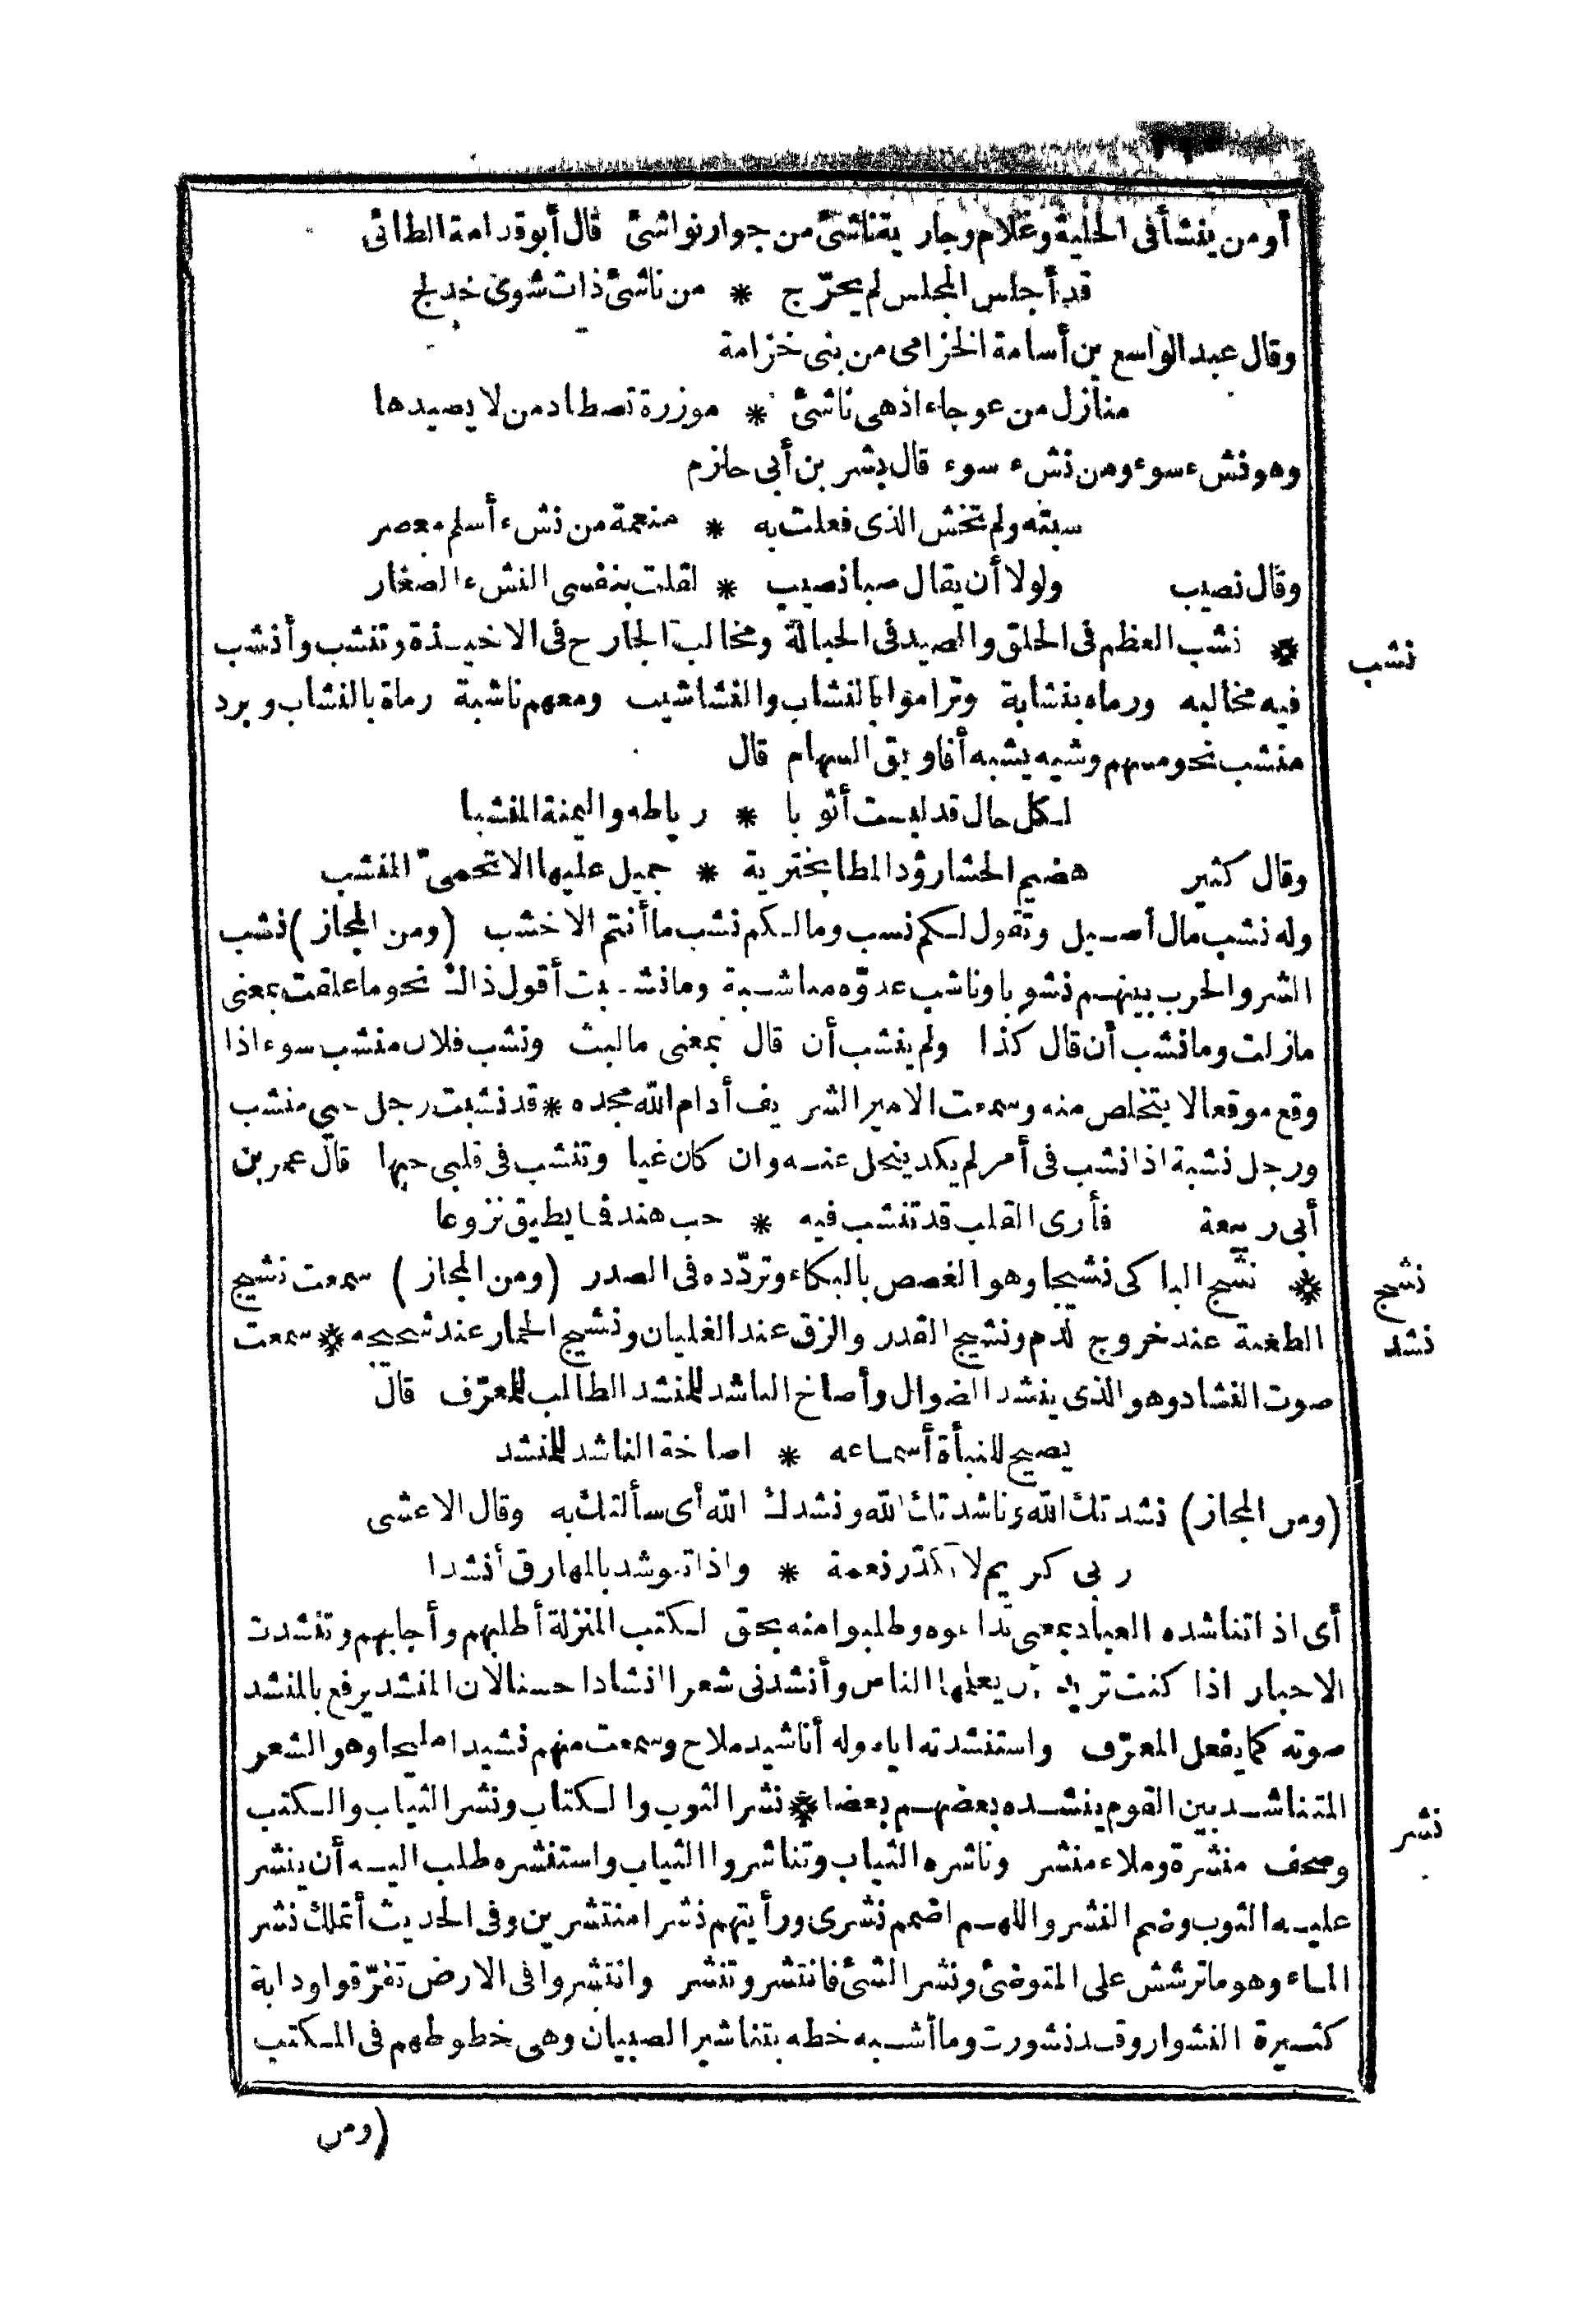 أومن ينشأفى الحلية وغلام وجارية ناشئ من جوار نواشئ قال أبوقدامة الطائى
قد أجلس المجلس لم يحرّج * من ناشئ ذات شوى خدلج
وقال عبد الواسع بن أسامة الخزامى من بنى خزامة
منازل من عوجاء اذهى ناشئ * موزرة تصطاد من لا يصيدها
وهونشء سوء ومن نشء سوء قال بشر بن أبى حازم
سبته ولم تخش الذى فعلت به * منعمة من نشء أسلم معصر
وقال نصيب ولولا أن يقال صبا نصيب * لقلت بنفسى النشء الصغار
نشب
* نشب العظم فى الحلق والصيد فى الحبالة ومخالب الجارح فى الاخيذة وتنشب وأنشب
فيه مخالبه ورماه بنشابة وتراموا بالنشاب والنشاشيب ومعهم ناشبة رماة بالنشاب وبرد
منشب نحو مسهم وشيه يشبه أفاويق السهام قال
لكل حال قد لبست أثوبا * رياطه واليمنة المنشبا
وقال كثير هضيم الحشا رؤد المطا بخترية * جميل عليها الاتحمىّ المنشب
وله نشب مال أصيل وتقول لكم نسب ومالكم نشب ما أنتم الا خشب (ومن المجاز) نشب
الشر والحرب بينهم نشوبا وناشب عدوّه مناشبة وما نشبت أقول ذاك نحو ما علقت بمعنى
مازلت وما نشب أن قال كذا ولم ينشب أن قال بمعنى ما لبث ونشب فلان منشب سوء اذا
وقع موقعا لا يتخلص منه وسمعت الامير الشريف أدام الله مجده * قد نشبت رجل منشب
ورجل نشبة اذا نشب فى أمر لم يكد ينحل عنه وان كان غيا وتنشب فى قلبى حبها قال عمر بن
أبى ربيعة فأرى القلب قد تنشب فيه * حب هند فما يطيق نزوعا
نشج
* نشج الباكى نشيجا وهو الغصص بالبكاء وتردّده فى الصدر (ومن المجاز) سمعت نشيج
نشد
الطعنة عند خروج الدم ونشيج القدر والزق عند الغليان ونشيج الحمار عند شحيجه * سمعت
صوت النشاد وهو الذى ينشد الضوال وأصاخ الناشد للمنشد الطالب للمعرّف قال
يصيح للنبأة أسماعه * اصاخة الناشد للمنشد
(ومن المجاز) نشدتك الله وناشدتك الله ونشدك الله أى سألتك به وقال الاعشى
ربى كريم لا يكدّر نعمة * واذا تنوشد بالمهارق أنشدا
أى اذا تناشده العباد بمعنى تداعوه وطلبوا منه بحق الكتب المنزلة أطلبهم وأجابهم وتنشدت
الاخبار اذا كنت تريد أن يعلمها الناس وأنشدنى شعرا انشادا حسنا لان المنشد يرفع بالمنشد
صوته كما يفعل المعرّف واستنشدته اياه وله أناشيد ملاح وسمعت منهم نشيدا مليحا وهو الشعر
نشر
المتناشد بين القوم ينشده بعضهم بعضا * نشر الثوب والكتاب ونشر الثياب والكتب
وصحف منشرة وملاء منشر وناشره الثياب وتناشروا الثياب واستنشره طلب اليه أن ينشر
عليه الثوب وضم النشر واللهم اضمم نشرى ورأيتهم نشرا منتشرين وفى الحديث أتملك نشر
الماء وهو ما ترشش على المتوضئ ونشر الشئ فانتشر وتنشر وانتشروا فى الارض تفرّقوا ودابة
كثيرة النشوار وقد نشورت وما أشبه خطه بتناشير الصبيان وهى خطوطهم فى المكتب
(ومن